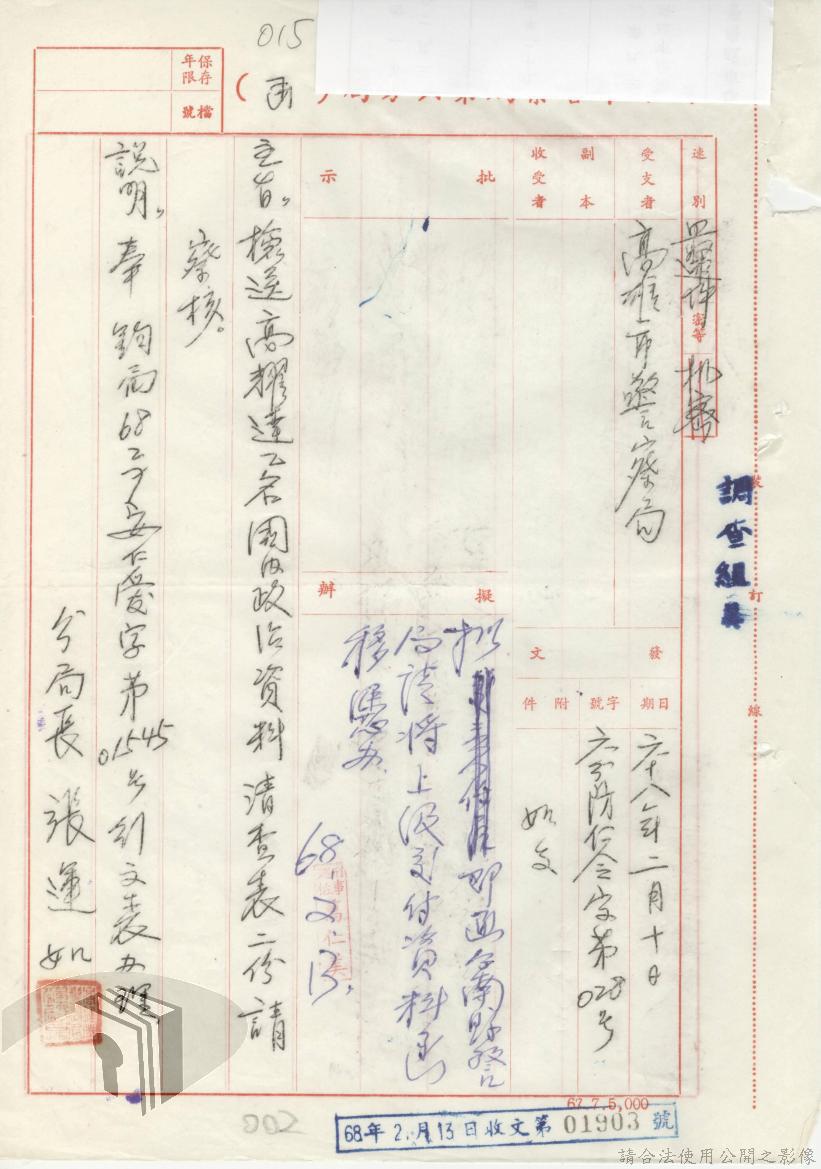 015
(函)
保存年限
檔號
速別
最速件
密等
機密
受文者
高雄市警察局
副本收受者
批示
擬辦
發文
日期
六十八年二月十日
字號
字第028號
附件
如文
擬
即函台南縣警
局請將上級交付資料
移還憑辦
68.2.13.
主旨:檢送高耀達乙名國內政治資料清查表二份請
察核。
說明:奉 鈞局68
字第01545號
辦理
分局長 張運如
調查組
裝
訂
線
67.7.5,000
002
68年2月13日收文第01903號
請合法使用公開之影像